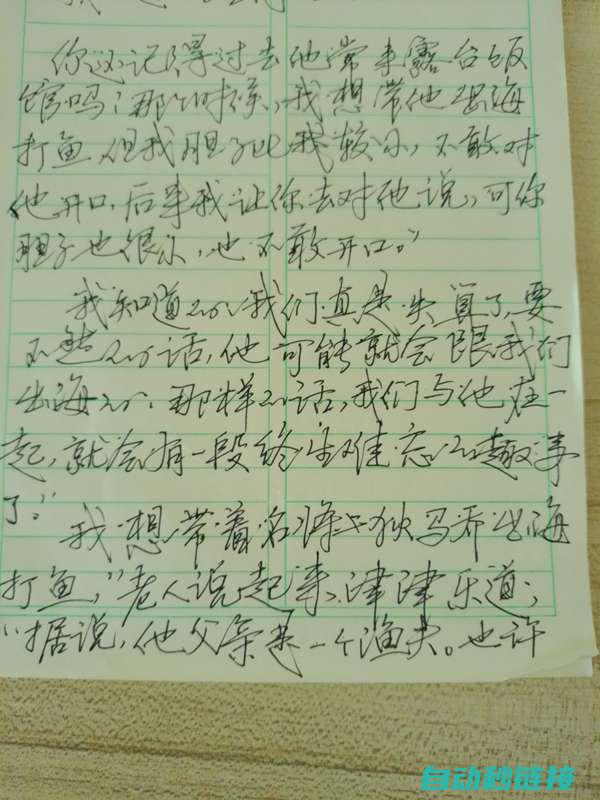 你还记得过去他常来露台饭
馆吗？那时候，我想带他出海
打鱼，但我胆子比较小，不敢对
他开口，后来我让你去对他说，可你
胆子也很小，也不敢开口。”
我知道的，我们真是失算了，要
不然的话，他可能就会跟我们
出海的。那样的话，我们与他在一
起，就会有一段终生难忘的趣事
了。”
我想带着名将迪马乔出海
打鱼，”老人说起来，津津乐道；
“据说，他父亲是一个渔夫。也许
自动秒链接